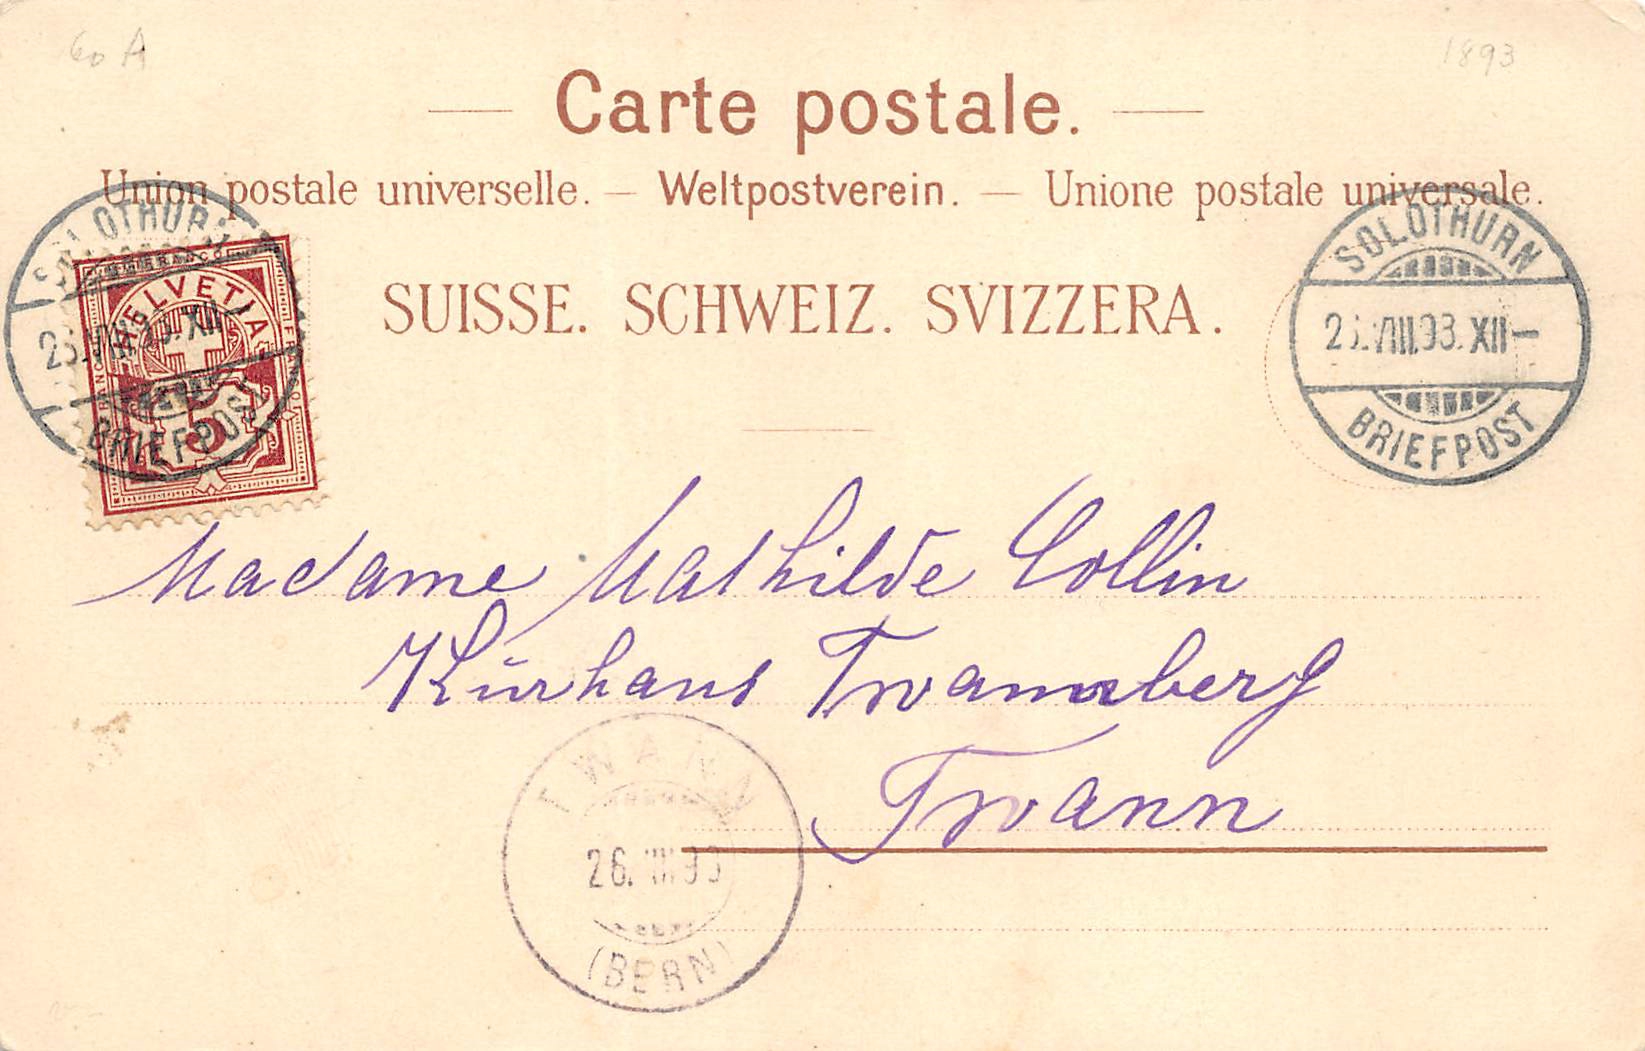 60 A
1893
Carte postale.
Union postale universelle. – Weltpostverein. – Unione postale universale.
SUISSE. SCHWEIZ. SVIZZERA.
SOLOTHURN
XII–
BRIEFPOST
FRANCO
HELVETIA
FRANCO
FRANCO
5
SOLOTHURN
VIII.93. XII–
BRIEFPOST
Madame Mathilde Collin
Kurhaus Twannberg
Twann
TWANN
26. VIII.93
(BERN)